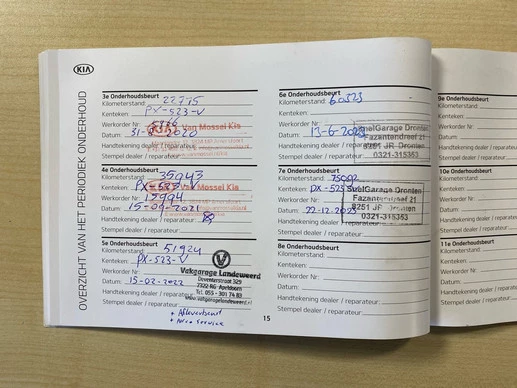 KIA
OVERZICHT VAN HET PERIODIEK ONDERHOUD
3e Onderhoudsbeurt
Kilometerstand: 22775
Kenteken: PX-523-V
Werkorder Nr:
Datum: 2020
Van Mossel Kia
Handtekening dealer / reparateur:
Stempel dealer / reparateur:
4e Onderhoudsbeurt
Kilometerstand: 35943
Kenteken: PX-523-V
Van Mossel Kia
Werkorder Nr:
Datum: 15-09-2021
Handtekening dealer / reparateur:
Stempel dealer / reparateur:
5e Onderhoudsbeurt
Kilometerstand: 51924
Kenteken: PX-523-V
Werkorder Nr:
Datum: 15-02-2022
Handtekening dealer / reparateur:
Stempel dealer / reparateur:
Vakgarage Landeweerd
Deventerstraat 329
7322 RG Apeldoorn
Tel. 055 - 301 74 83
+ Afleverbeurt
+ Airco service
15
6e Onderhoudsbeurt
Kilometerstand: 60523
Kenteken:
Werkorder Nr:
Datum: 13-6-2023
Handtekening dealer / reparateur:
Stempel dealer / reparateur:
SnelGarage Dronten
Fazantendreef 21
8251 JR Dronten
0321-315353
7e Onderhoudsbeurt
Kilometerstand:
Kenteken: PX-523
Werkorder Nr:
Datum: 22-12-2023
Handtekening dealer / reparateur:
Stempel dealer / reparateur:
SnelGarage Dronten
Fazantendreef 21
8251 JR Dronten
0321-315353
8e Onderhoudsbeurt
Kilometerstand:
Kenteken:
Werkorder Nr:
Datum:
Handtekening dealer / reparateur:
Stempel dealer / reparateur:
9e Onderhoudsbeurt
Kilometerstand:
Kenteken:
Werkorder Nr:
Datum:
Handtekening
Stempel dealer
10e Onderhoudsbeurt
Kilometerstand:
Kenteken:
Werkorder Nr:
Datum:
Handtekening
Stempel dealer
11e Onderhoudsbeurt
Kilometerstand:
Kenteken:
Werkorder Nr:
Datum:
Handtekening dealer
Stempel dealer